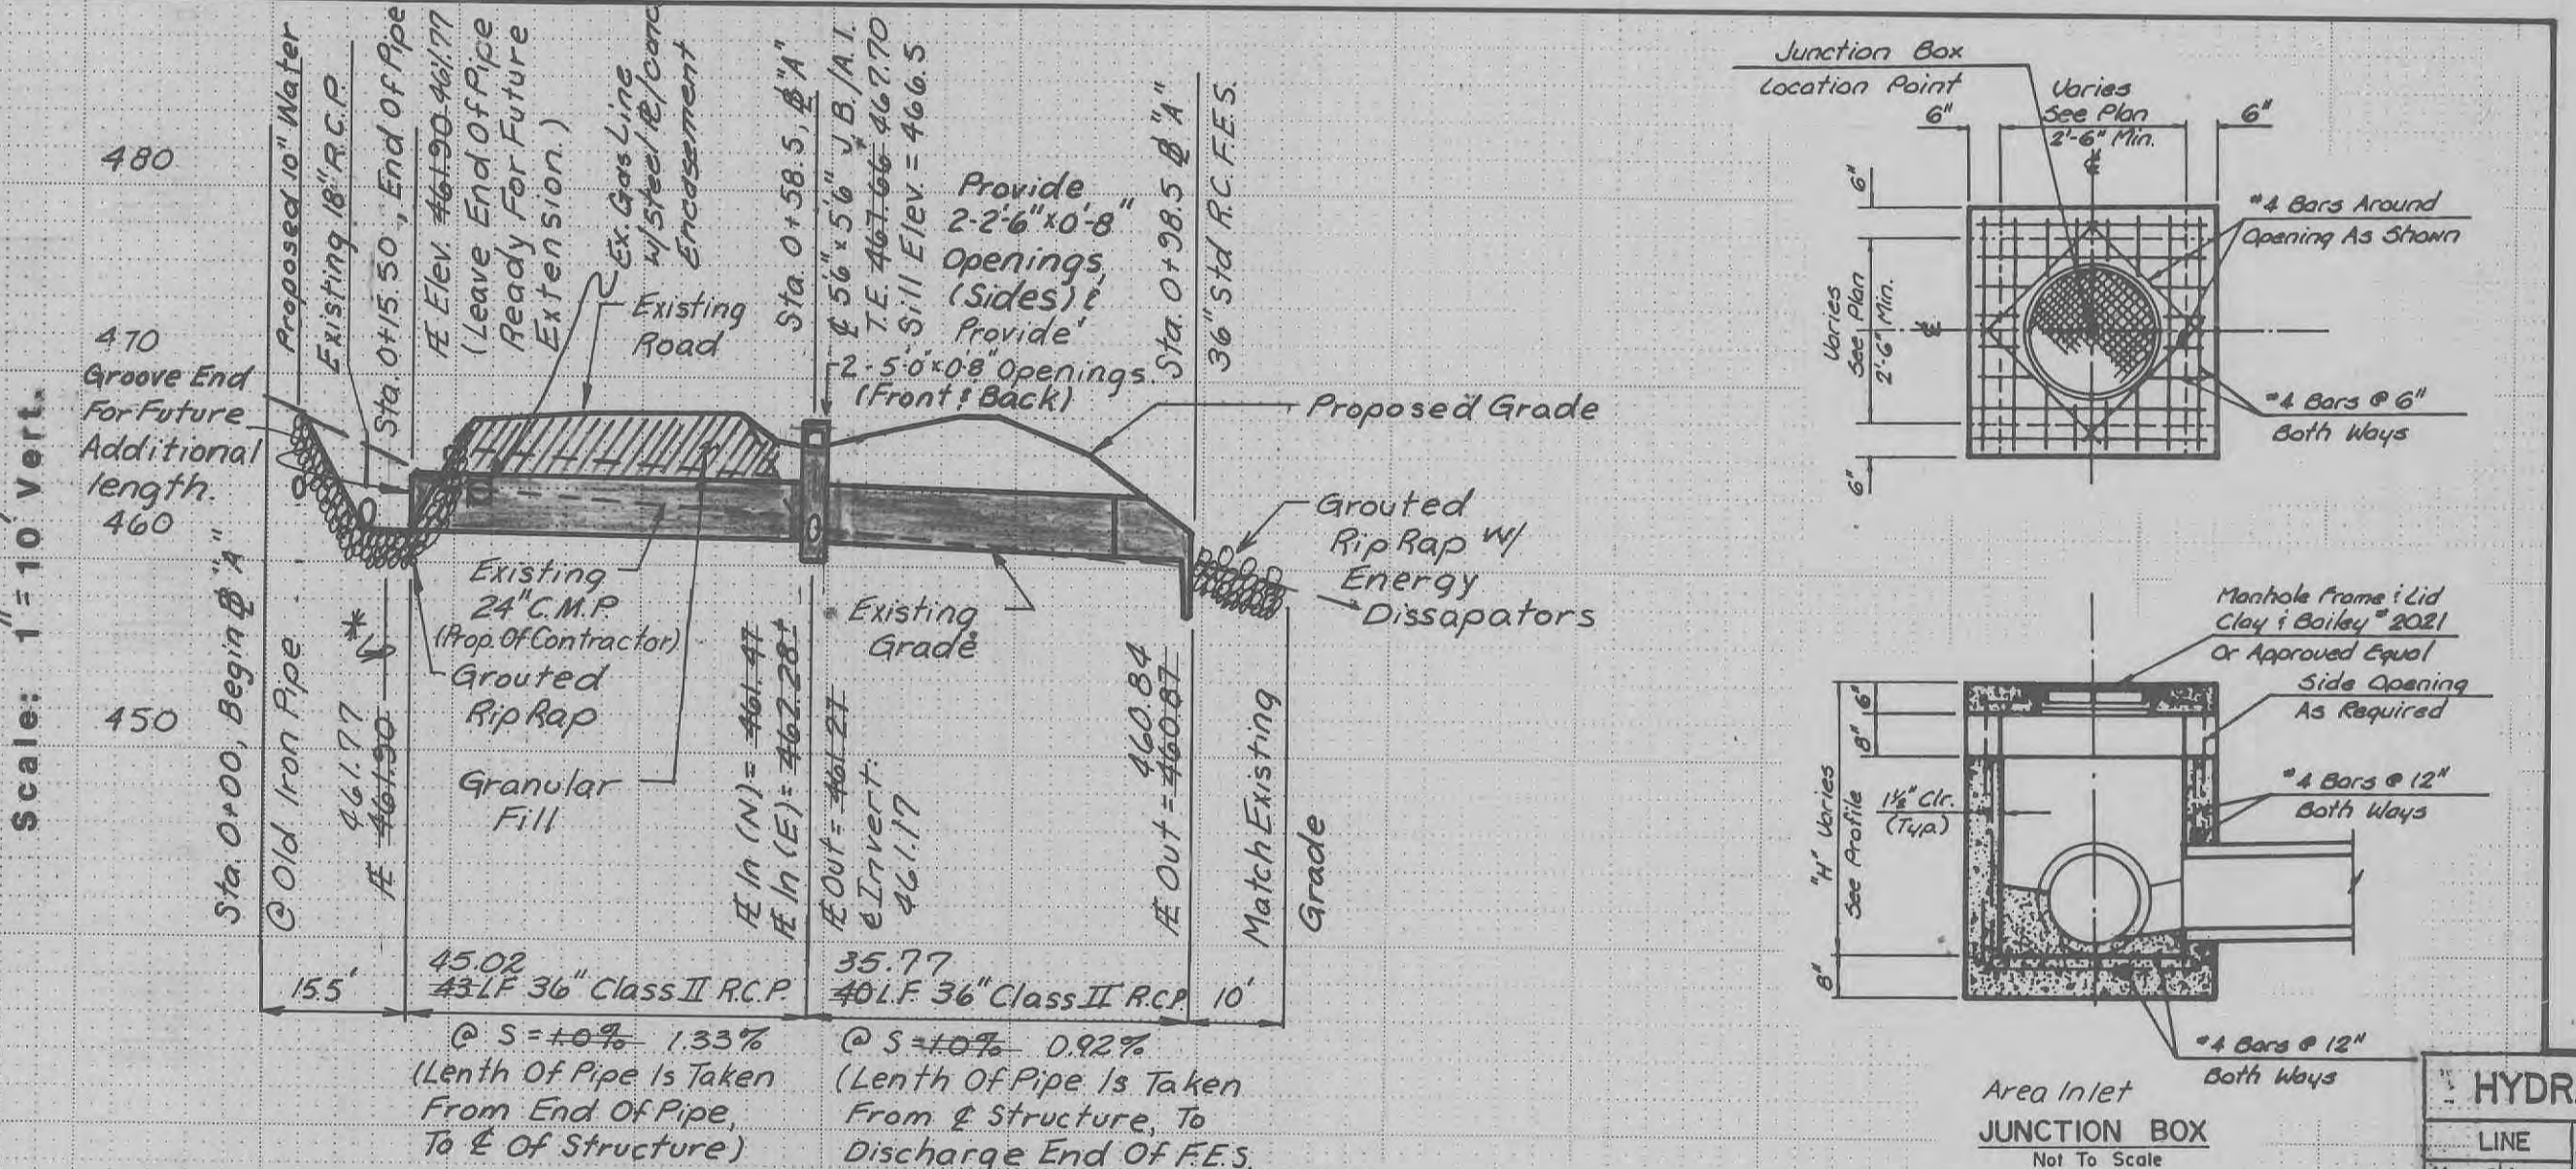 Scale: 1"=10' Vert.
480
470
460
450
Groove End
For Future
Additional
length.
Proposed 10" Water
Existing 18" R.C.P.
Sta. 0+15.50, End Of Pipe
Elev. 461.90 461.77
(Leave End Of Pipe
Ready For Future
Extension.)
Ex. Gas Line
Encasement
Existing
Road
Sta. 0+58.5, "A"
5'6" x 5'6" J.B./A.I.
T.E. 467.66 467.70
Sill Elev = 466.5
Provide
2-2'-6"x0'-8"
Openings
(Sides) &
Provide
2-5'0"x0'8" Openings
(Front & Back)
Sta. 0+98.5 "A"
36" Std R.C.F.E.S.
Proposed Grade
Grouted
Rip Rap w/
Energy
Dissapators
Existing
24" C.M.P.
(Prop. Of Contractor)
Grouted
Rip Rap
Granular
Fill
Existing
Grade
Sta. 0+00, Begin "A"
@ Old Iron Pipe
461.77
461.90
In (N) = 461.47
In (E) = 462.28
Out = 461.27
¢ Invert:
461.17
460.84
Out = 460.87
Match Existing
Grade
15.5'
45.02
43 LF 36" Class II R.C.P.
35.77
40 L.F. 36" Class II R.C.P.
10'
@ S = 1.0% 1.33%
(Lenth Of Pipe Is Taken
From End Of Pipe,
To ¢ Of Structure)
@ S = 1.0% 0.92%
(Lenth Of Pipe Is Taken
From ¢ Structure, To
Discharge End Of F.E.S.
Junction Box
Location Point
Varies
See Plan
2'-6" Min.
6"
6"
6"
Varies
See Plan
2'-6" Min.
6"
#4 Bars Around
Opening As Shown
#4 Bars @ 6"
Both Ways
Manhole Frame & Lid
Clay & Bailey #2021
Or Approved Equal
Side Opening
As Required
6"
8"
"H" Varies
See Profile
8"
1½" Clr.
(Typ.)
#4 Bars @ 12"
Both Ways
#4 Bars @ 12"
Both Ways
Area Inlet
JUNCTION BOX
Not To Scale
HYDR
LINE